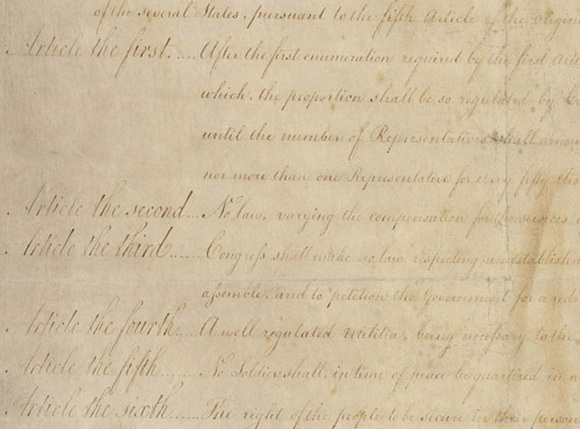 of the several States, pursuant to the fifth Article of the
Article the first..... After the first enumeration required by the first
which, the proportion shall be so regulated by
until the number of Representatives shall
nor more than one Representative for every fifty
Article the second... No law, varying the compensation for the services
Article the third...... Congress shall make no law respecting an
assemble, and to petition the Government for a
Article the fourth.... A well regulated Militia, being necessary to the
Article the fifth ...... No Soldier shall, in time of peace be quartered in
Article the sixth...... The right of the people to be secure in their